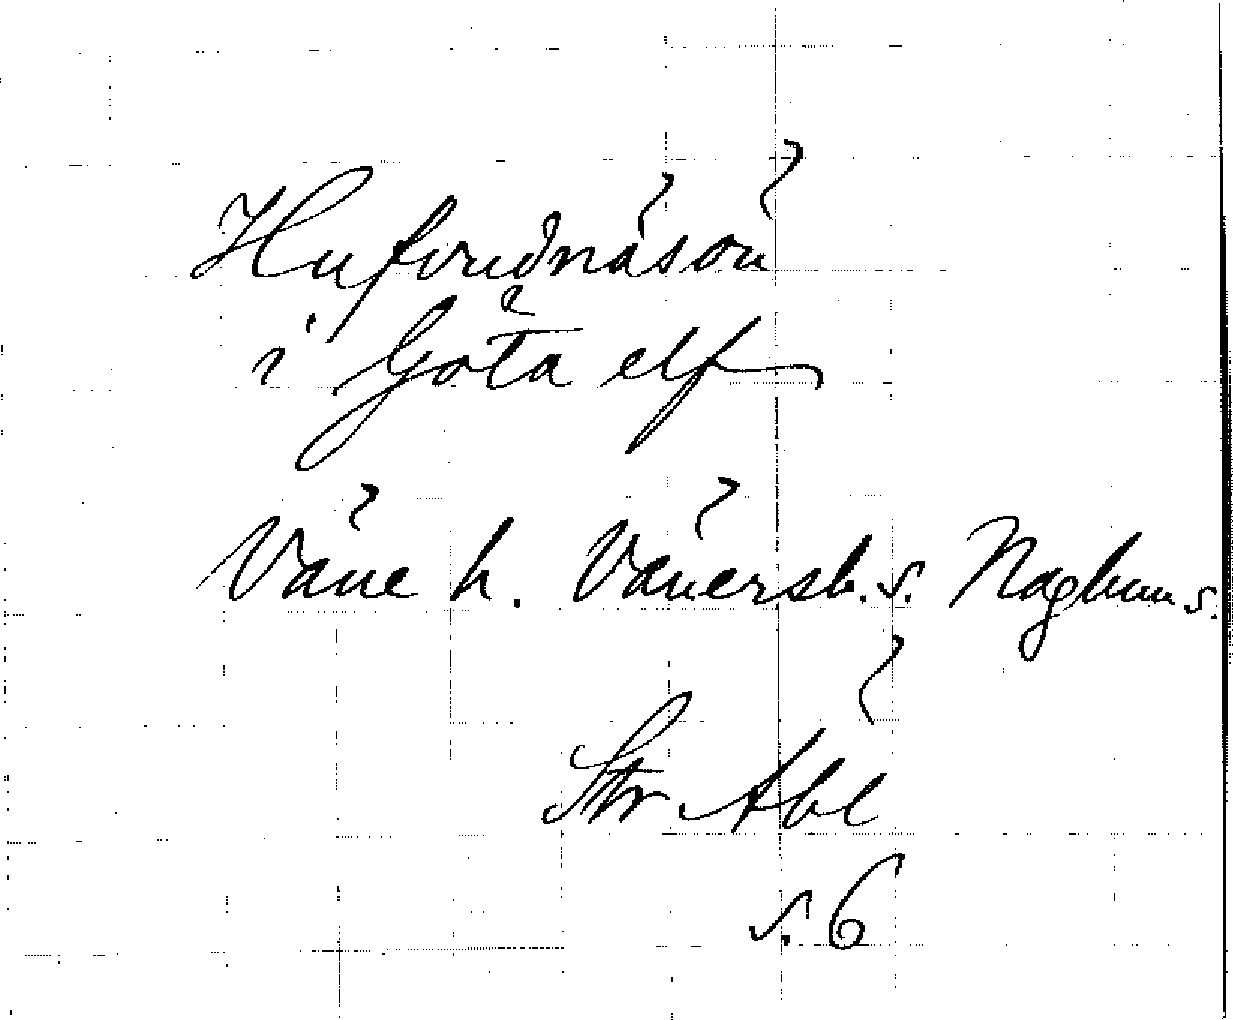 Hufvudnäsön
i Göta elf
Väne h. Vänersb. s. Naglum s.
Str Abl
s. 6